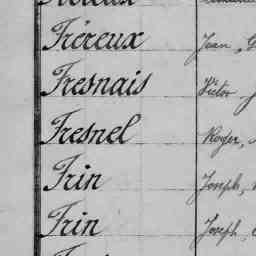 Fréreux Jean, G
Fresnais Victor J
Fresnel Roger,
Frin Joseph,
Frin Joseph,